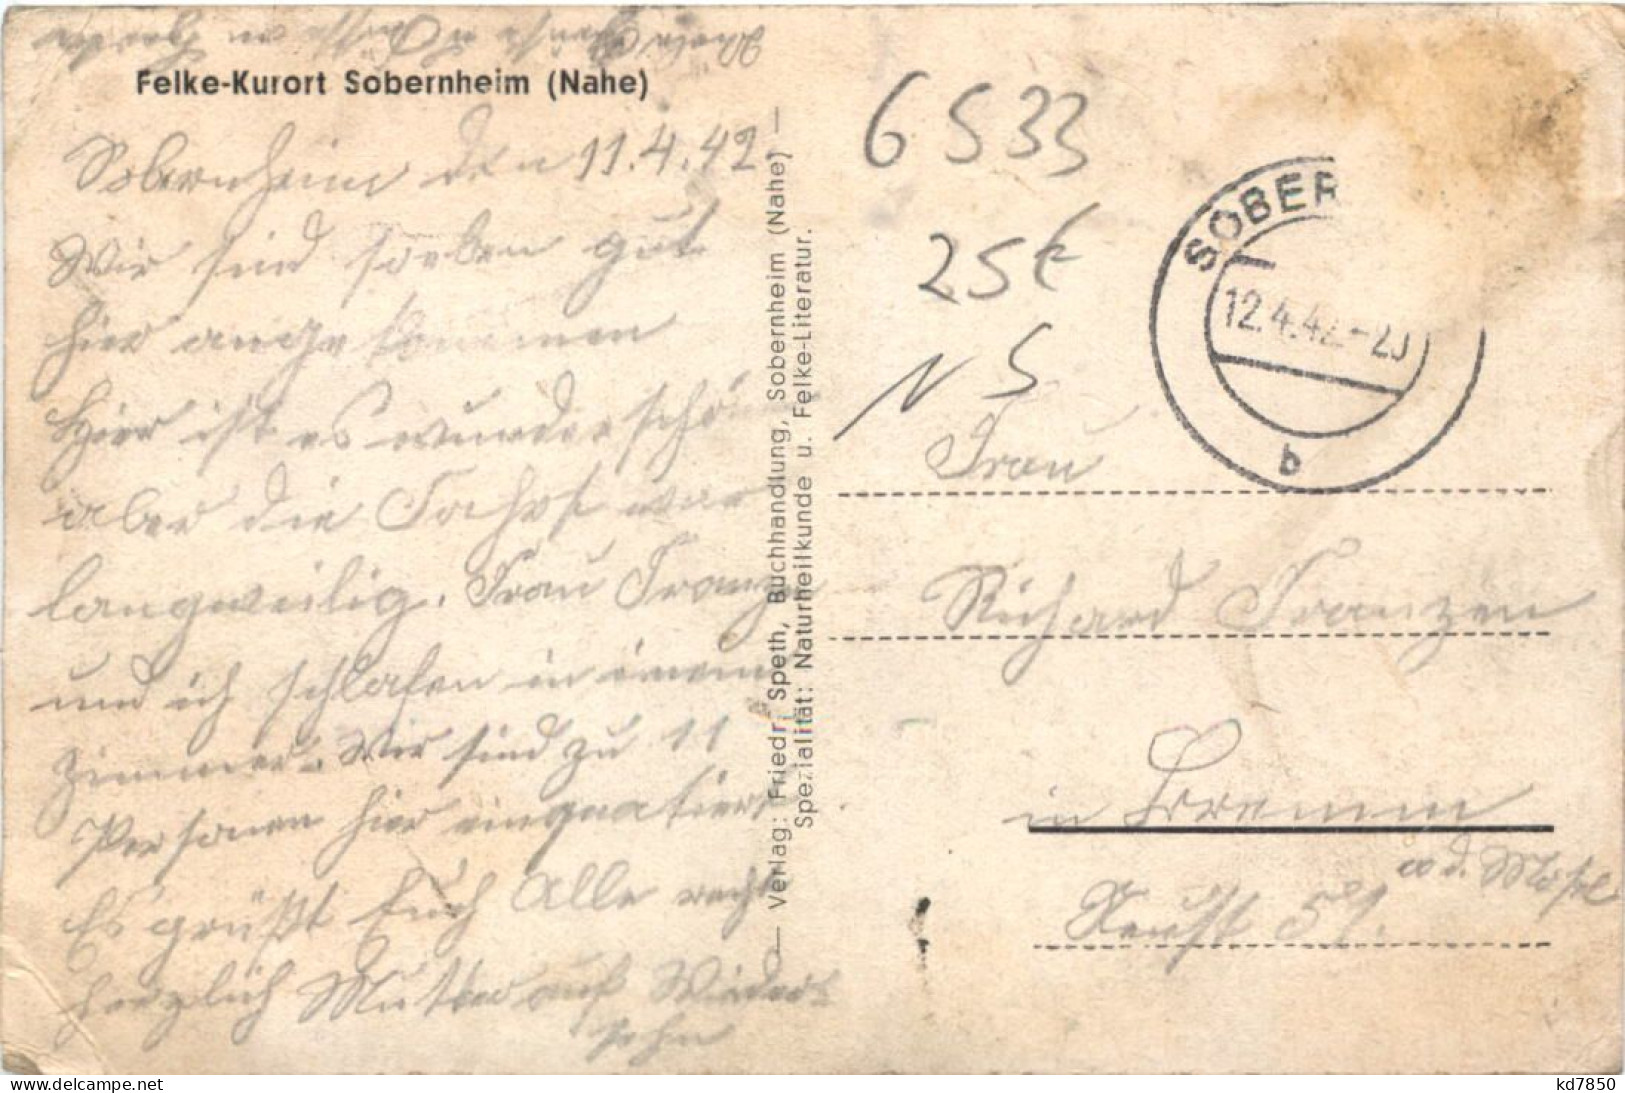 Felke-Kurort Sobernheim (Nahe)
Sobernheim den 11.4.42
Wir sind soeben gut
hier angekommen
Hier ist es wunderschön
aber die Fahrt war
langweilig. Frau Franzen
und ich schlafen in einem
Zimmer. Wir sind zu 11
Personen hier einquatiert
Es grüßt Euch Alle recht
herzlich Mutter auf Wieder-
sehn
— Verlag: Friedr. Speth, Buchhandlung, Sobernheim (Nahe) —
Spezialität: Naturheilkunde u. Felke-Literatur.
6533
25€
N S
SOBER
12.4.42.-20
b
Frau
Richard Franzen
in Bremm
a d. Mosel
www.delcampe.net
kd7850